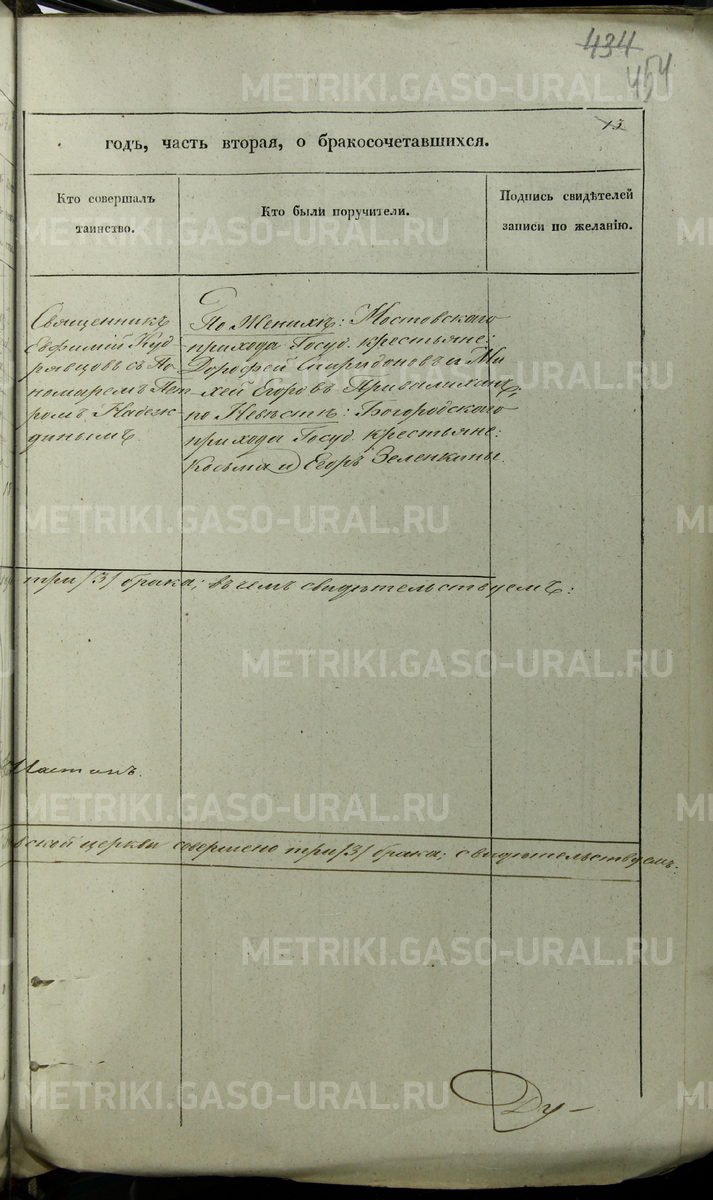 434
454
13
годъ, часть вторая, о бракосочетавшихся.
Кто совершалъ
таинство.
Кто были поручители.
Подпись свидѣтелей
записи по желанію.
Священникъ
Евфимій Куд
рявцовъ съ По
номаремъ Пет
ромъ Надеж
динымъ.
По Женихѣ: Мостовскаго
прихода Госуд. крестьяне:
Дорофей Спиридоновъ и Ми
хей Егоровъ Привалихи
по Невѣстѣ: Богородскаго
прихода Госуд. крестьяне:
Козьма и Егоръ Зеленкины.
три /3/ брака; въ чемъ свидѣтельствуемъ:
вской церкви совершено три /3/ брака; свидѣтельствуемъ.
Ду-
METRIKI.GASO-URAL.RU